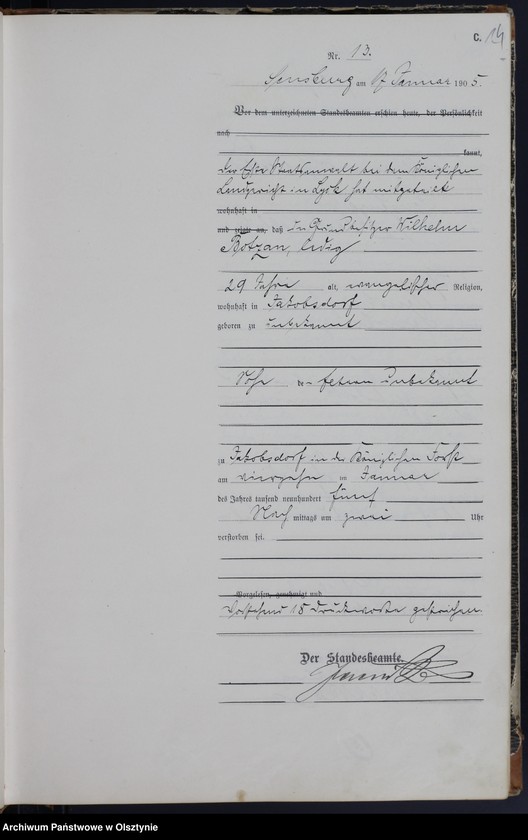 C. 14
Nr. 13.
Sensburg am 17 Januar 1905.
Vor dem unterzeichneten Standesbeamten erschien heute, der Persönlichkeit
nach
kannt,
der Erste Staatsanwalt bei dem Königlichen
Landgericht in Lyck hat mitgeteilt
wohnhaft in
und zeigte an, daß der Grundbesitzer Wilhelm
Botzan, ledig
29 Jahre alt, evangelischer Religion,
wohnhaft in Jakobsdorf
geboren zu unbekannt
Sohn der Eltern unbekannt
zu Jakobsdorf in der Königlichen Forst
am vierzehn ten Januar
des Jahres tausend neunhundert fünf
Nach mittags um zwei Uhr
verstorben sei.
Vorgelesen, genehmigt und
Vorstehend 15 Druckworte gestrichen.
Der Standesbeamte.
Archiwum Państwowe w Olsztynie